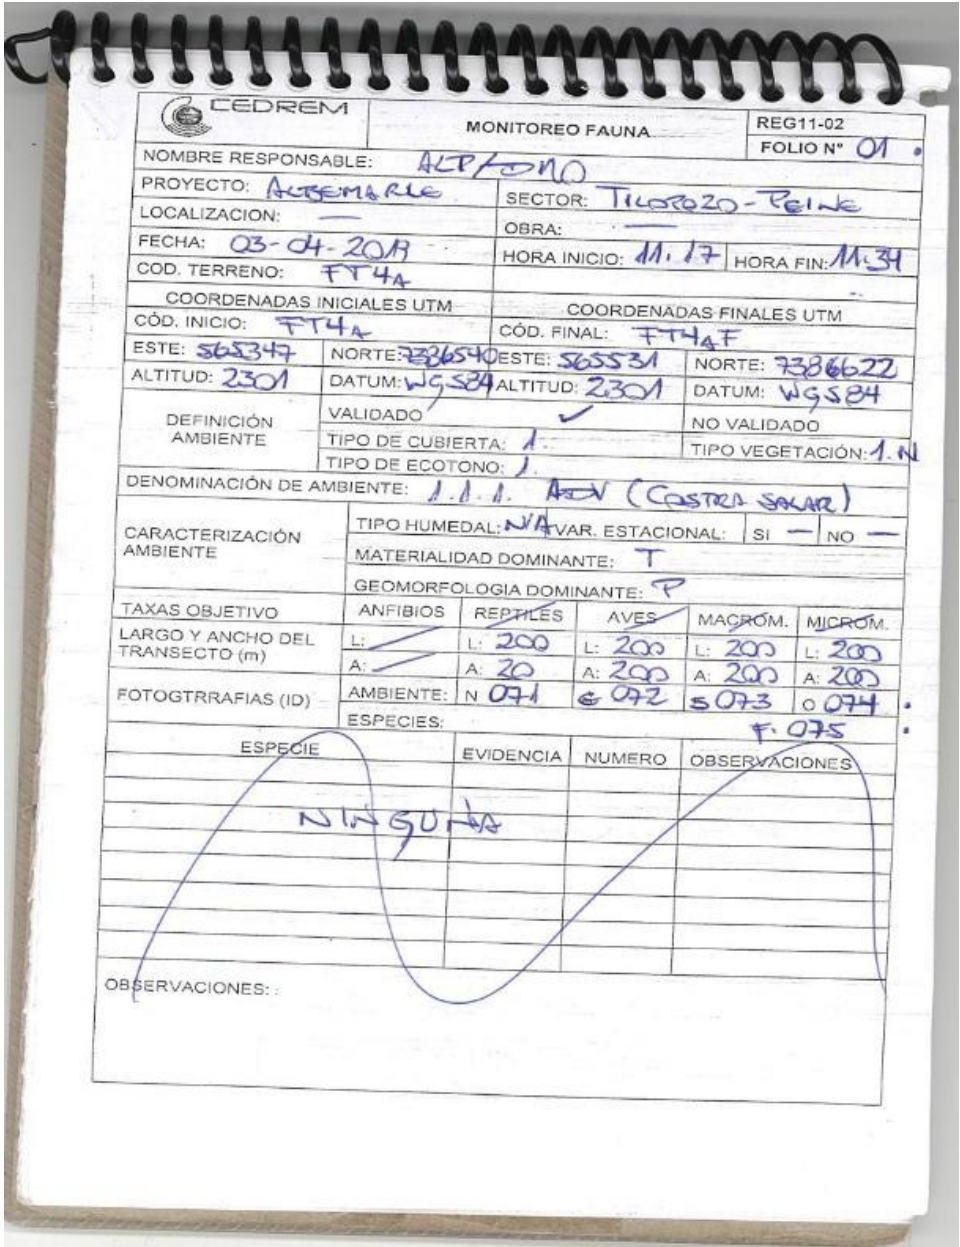 CEDREM
MONITOREO FAUNA
REG11-02
FOLIO N° 01
NOMBRE RESPONSABLE: ALP/
PROYECTO: ALBEMARLE SECTOR: TILOPOZO-PEINE
LOCALIZACION: — OBRA: —
FECHA: 03-04-2019 HORA INICIO: 11.17 HORA FIN: 11.34
COD. TERRENO: FT4A
COORDENADAS INICIALES UTM COORDENADAS FINALES UTM
CÓD. INICIO: FT4A CÓD. FINAL: FT4AF
ESTE: 565347 NORTE: 7386540 ESTE: 565531 NORTE: 7386622
ALTITUD: 2301 DATUM: WGS84 ALTITUD: 2301 DATUM: WGS84
DEFINICIÓN AMBIENTE
VALIDADO ✓ NO VALIDADO
TIPO DE CUBIERTA: 1. TIPO VEGETACIÓN: 1. N
TIPO DE ECOTONO: 1.
DENOMINACIÓN DE AMBIENTE: 1.1.1. ADV (COSTRA SALAR)
CARACTERIZACIÓN AMBIENTE
TIPO HUMEDAL: N/A VAR. ESTACIONAL: SI — NO —
MATERIALIDAD DOMINANTE: T
GEOMORFOLOGIA DOMINANTE: P
TAXAS OBJETIVO ANFIBIOS REPTILES AVES MACROM. MICROM.
LARGO Y ANCHO DEL TRANSECTO (m)
L: L: 200 L: 200 L: 200 L: 200
A: A: 20 A: 200 A: 200 A: 200
FOTOGTRRAFIAS (ID) AMBIENTE: N 071 E 072 S 073 O 074
ESPECIES: F. 075
ESPECIE EVIDENCIA NUMERO OBSERVACIONES
NINGUNA
OBSERVACIONES: